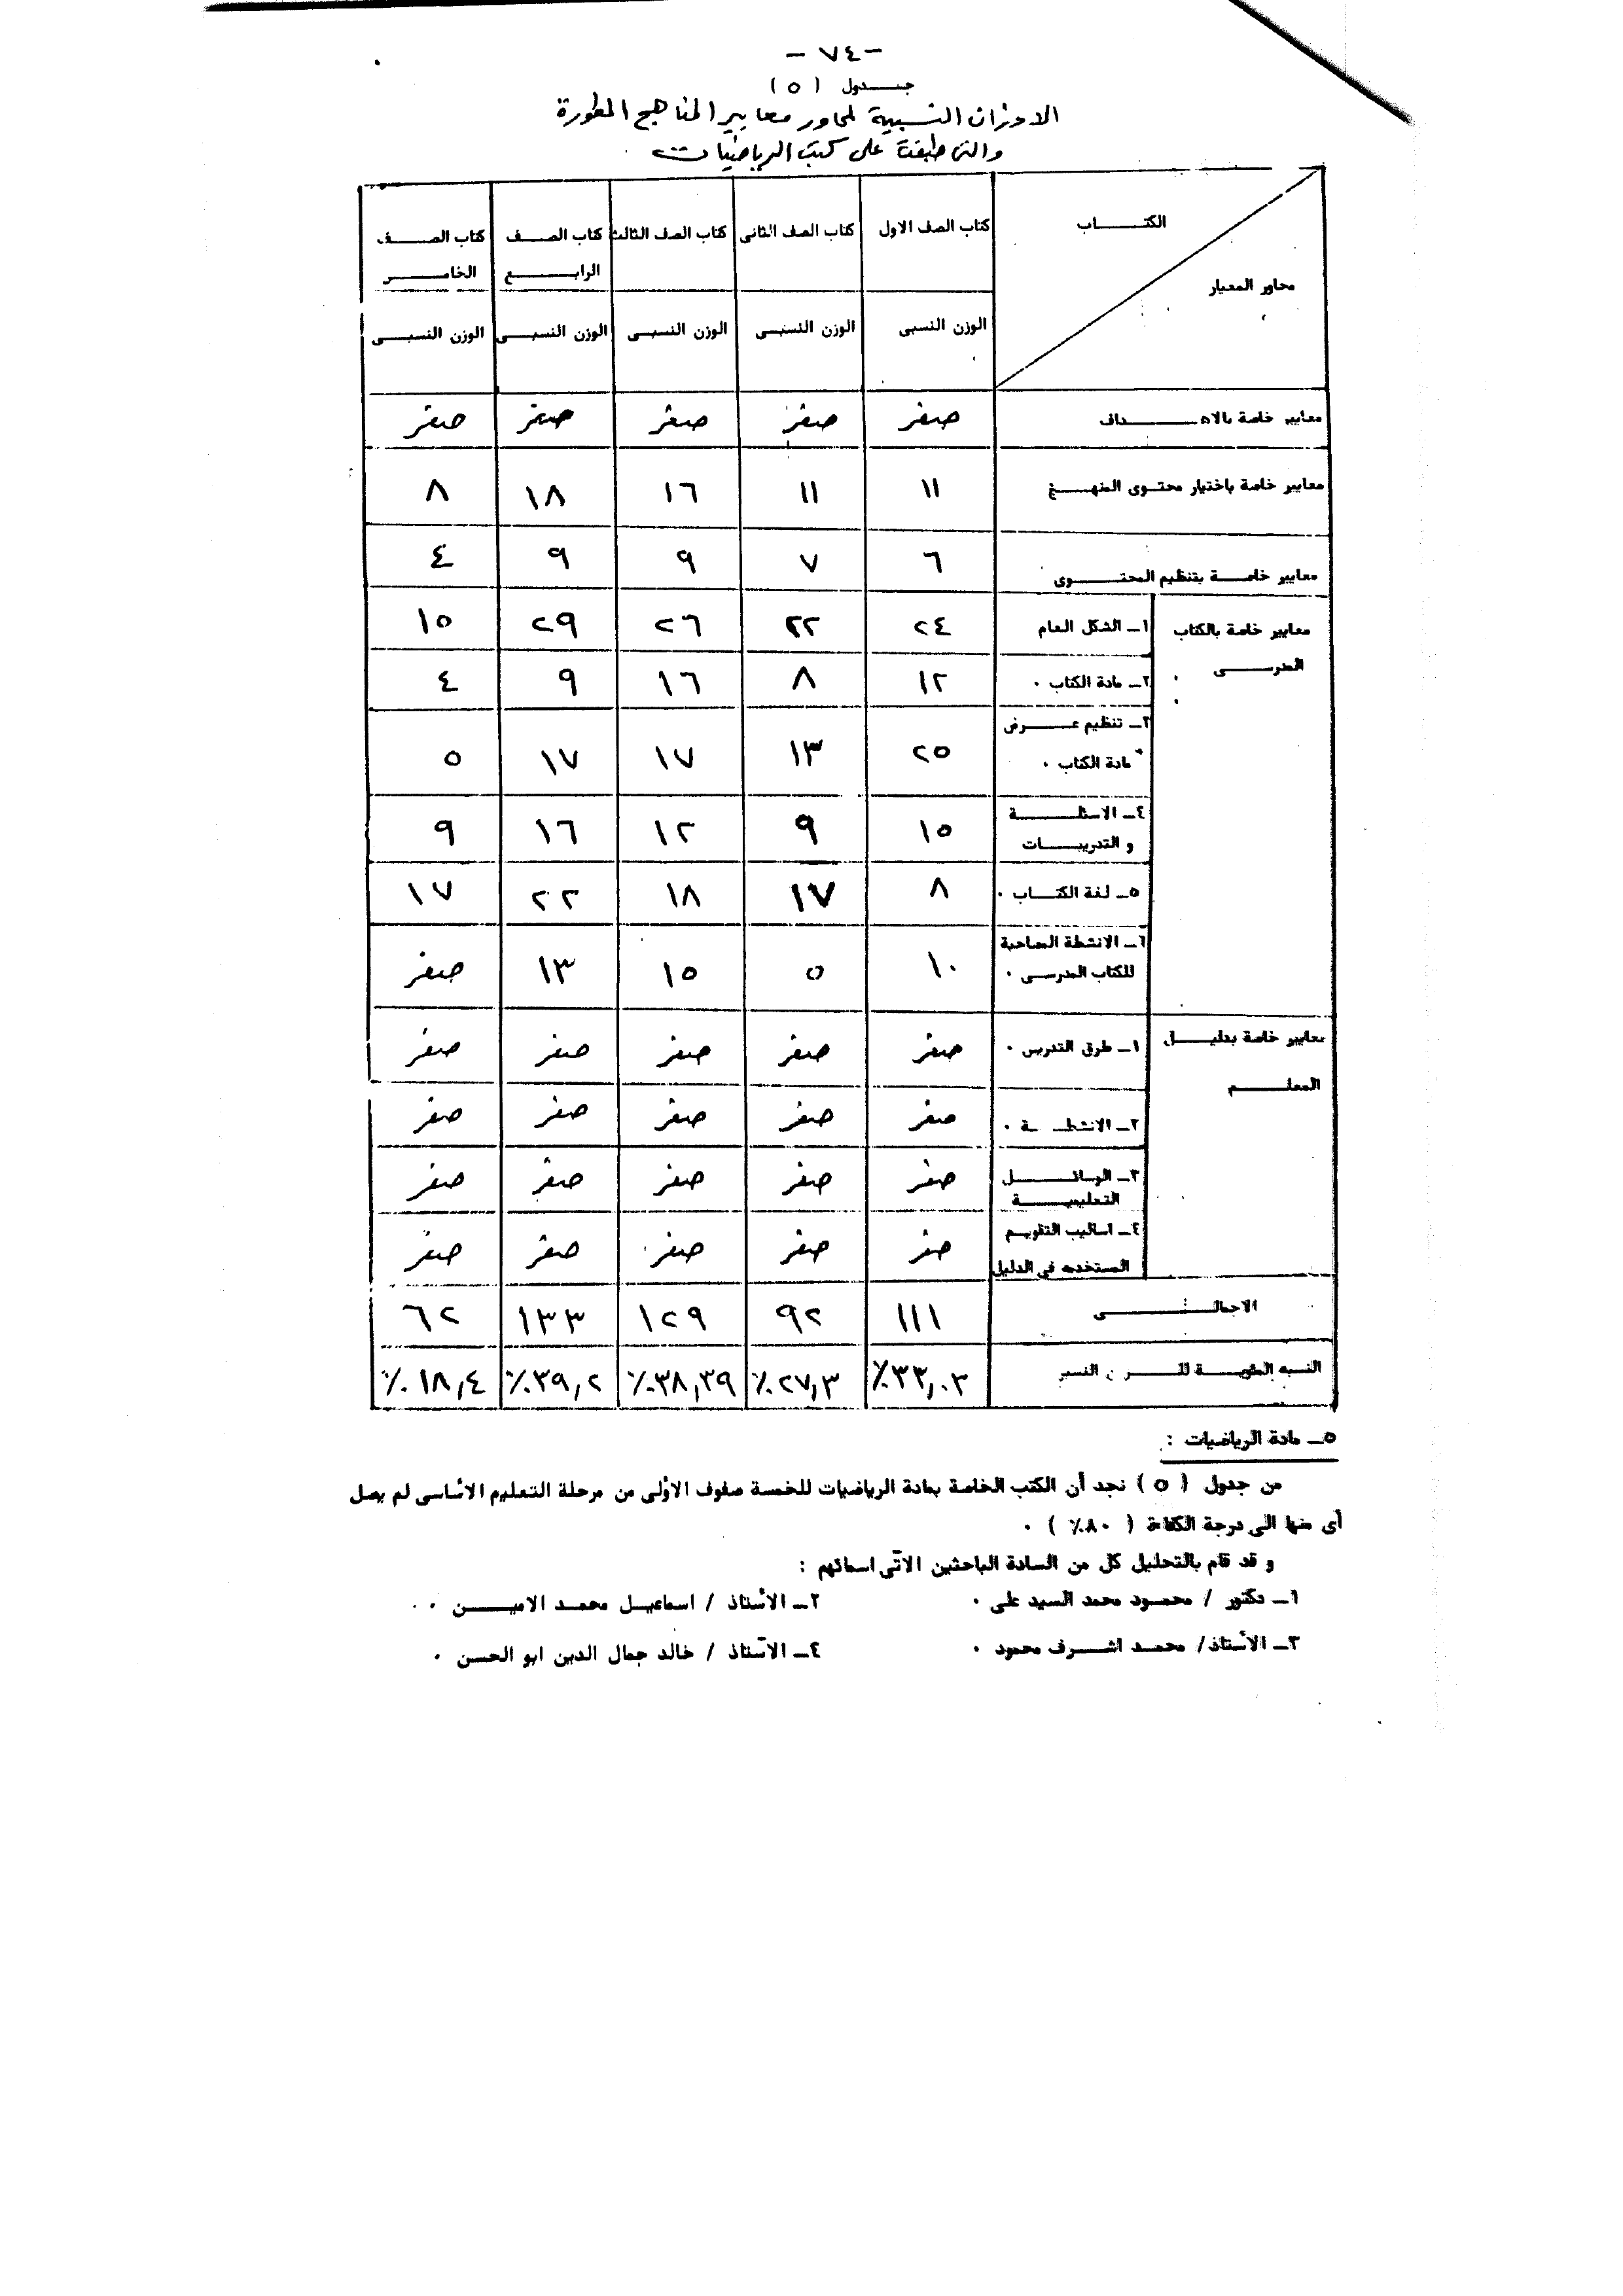 - ٧٤ -
جـــدول ( ٥ )
الاوزان النسبية لمحاور معايير المناهج المطورة
والتى طبقت على كتب الرياضيات
الكتـــاب
محاور المعيار
كتاب الصف الاول
كتاب الصف الثانى
كتاب الصف الثالث
كتاب الصـــف الرابـــــع
كتاب الصـــف الخامـــــس
الوزن النسبى
الوزن النسبـــى
الوزن النسبـــى
الوزن النسبـــى
الوزن النسبـــى
معايير خاصة بالاهـــــــداف صفر صفر صفر صفر صفر
معايير خاصة باختيار محتـوى المنهـــج ١١ ١١ ١٦ ١٨ ٨
معايير خاصـــة بتنظيم المحتـــــوى ٦ ٧ ٩ ٩ ٤
معايير خاصة بالكتاب
المدرســـــى
١ـ الشكل العام ٢٤ ٢٢ ٢٦ ٢٩ ١٥
٢ـ مادة الكتاب ٠ ١٢ ٨ ١٦ ٩ ٤
٣ـ تنظيم عـــــرض
مادة الكتاب ٠ ٢٥ ١٣ ١٧ ١٧ ٥
٤ـ الاسئلـــــــة
و التدريبـــــات ١٥ ٩ ١٢ ١٦ ٩
٥ـ لغة الكتـــاب ٠ ٨ ١٧ ١٨ ٢٢ ١٧
٦ـ الانشطة المصاحبة
للكتاب المدرســى ٠ ١٠ ٥ ١٥ ١٣ صفر
معايير خاصة بدليـــــل
المعلـــــــم
١ـ طرق التدريس ٠ صفر صفر صفر صفر صفر
٢ـ الانشطـــة ٠ صفر صفر صفر صفر صفر
٣ـ الوسائـــــــل
التعليميـــــة صفر صفر صفر صفر صفر
٤ـ اساليب التقويـم
المستخدمه فى الدليل صفر صفر صفر صفر صفر
الاجمالـــــــــى ١١١ ٩٢ ١٢٩ ١٣٣ ٦٢
النسبه المئويـــة للـــوزن النسبى ٣٣,٠٣٪ ٢٧,٣٪ ٣٨,٣٩٪ ٣٩,٢٪ ١٨,٤٪
٥ـ مادة الرياضيات :
من جدول ( ٥ ) نجد أن الكتب الخاصة بمادة الرياضيات للخمسة صفوف الأولى من مرحلة التعليم الأساسى لم يصل
أى منها الى درجة الكفاءة ( ٨٠٪ ) ٠
و قد قام بالتحليل كل من السادة الباحثين الآتى اسمائهم :
١ـ دكتور / محمـود محمد السيد على ٠ ٢ـ الأستاذ / اسماعيـل محمـد الاميـــــن ٠
٣ـ الأستاذ/ محمـد اشـــرف محمود ٠ ٤ـ الآستاذ / خالد جمال الدين ابو الحسن ٠